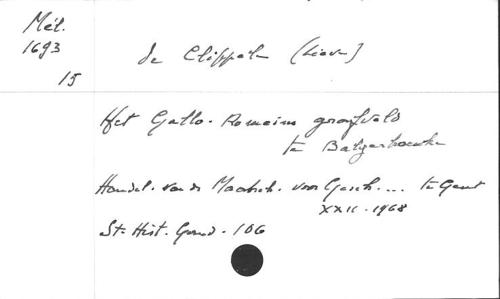 Mél.
1693
15
de Clippele (Lieve)
Het Gallo-Romeins grafveld
te Balgerhoeke
Handel. van de Maatsch. voor Gesch.... te Gent
XXII - 1968
St. Hist. Gand. 106